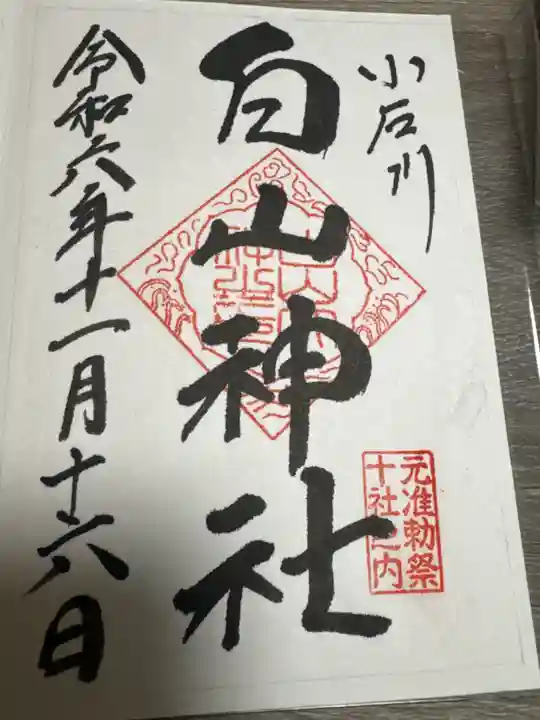 小石川
白山神社
元准勅祭
十社之内
令和六年十一月十六日